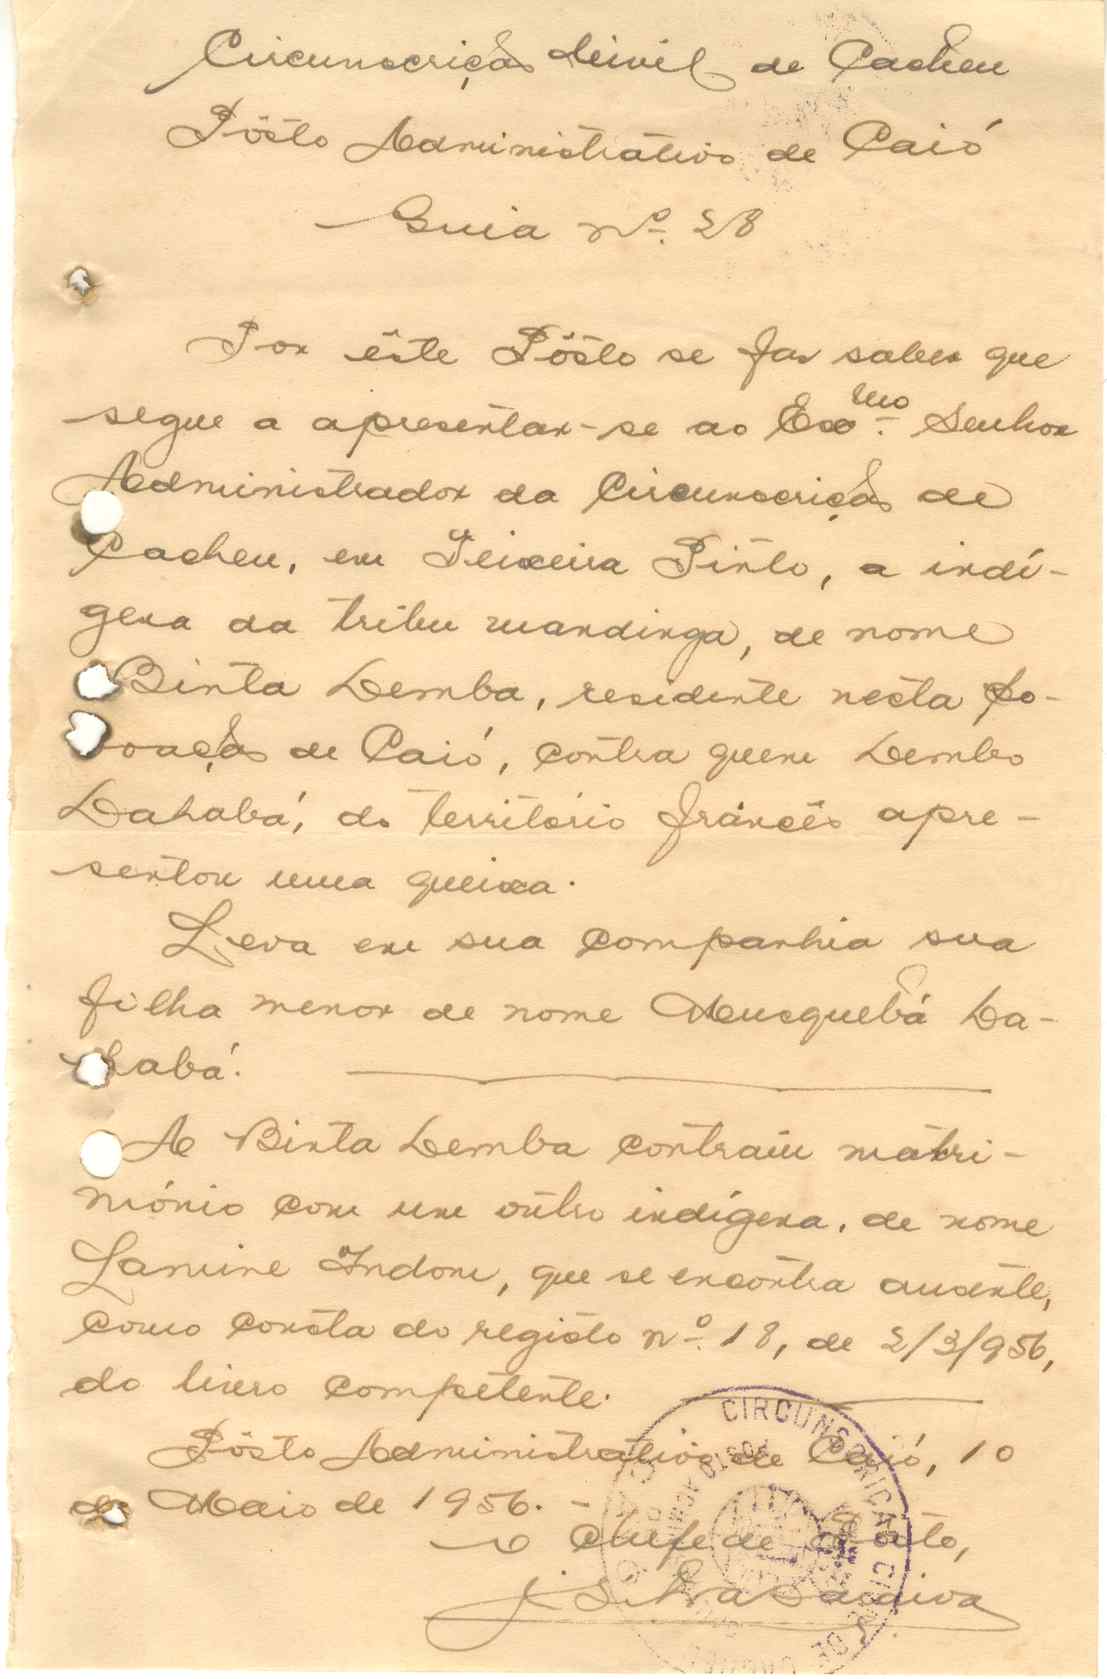 Circunscrição Civil de Cacheu
Pôsto Administrativo de Caió
Guia Nº. 28
Por êste Pôsto se faz saber que
segue a apresentar-se ao Exmo. Senhor
Administrador da Circunscrição de
Cacheu, em Teixeira Pinto, a indí-
gena da tribu mandinga, de nome
Binta Demba, residente nesta po-
voação de Caió, contra quem Dembo
Dahabá, do território francês apre-
sentou uma queixa.
Leva em sua companhia sua
filha menor de nome Musquebá Da-
habá.
A Binta Demba contraíu matri-
mónio com um outro indígena, de nome
Lamine Indom, que se encontra ausente,
como consta do registo nº. 18, de 2/3/956,
do livro competente.
Pôsto Administrativo de Caió, 10
de Maio de 1956. -
O Chefe de Pôsto,
J Silva Saraiva
CIRCUNSCRIÇÃO CIVIL DE CACHEU